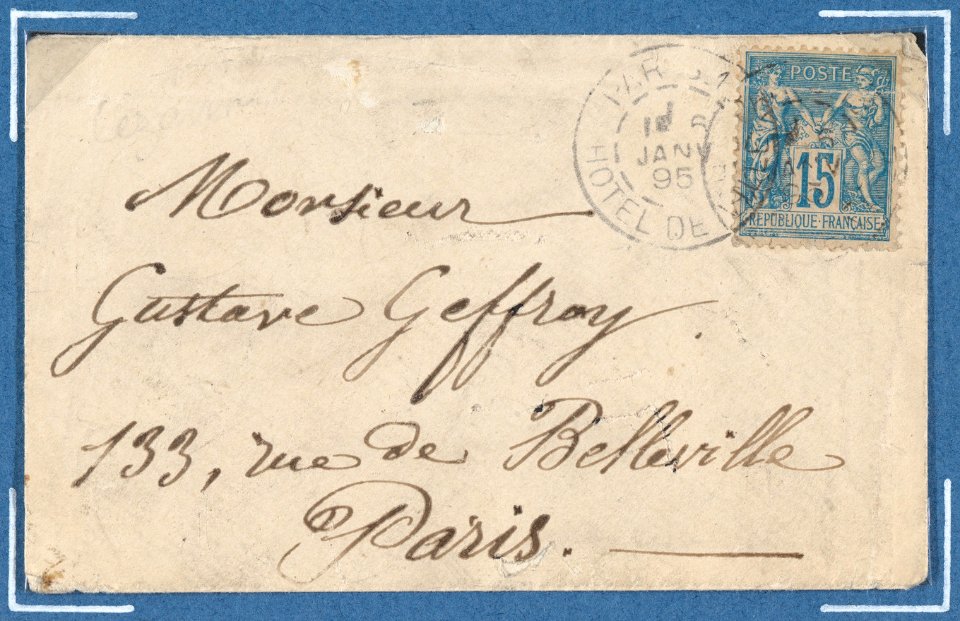 POSTE
15
RÉPUBLIQUE FRANÇAISE
PARIS
JANV
95
HOTEL DE
Monsieur
Gustave Geffroy.
133, rue de Belleville
Paris.